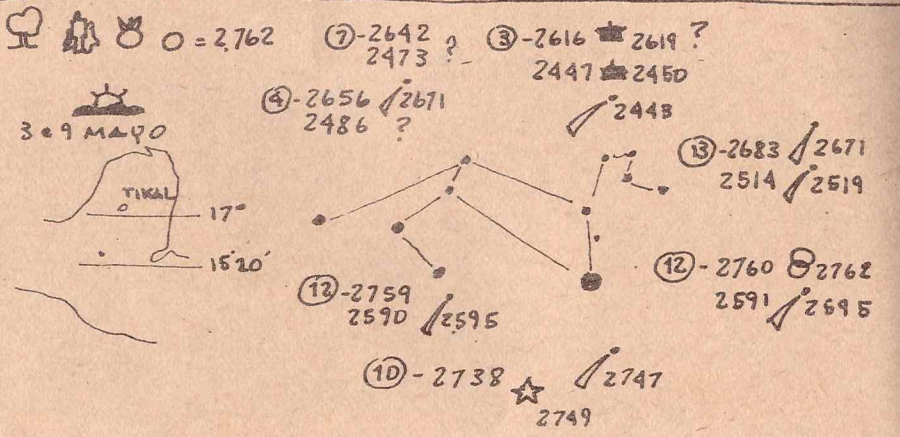 = 2,762
⑦-2642
2473 ?
③-2616 2619 ?
2447 2450
2448
④-2656 2671
2486 ?
3 e 9 MAYO
TIKAL
17°
15°20'
⑬-2683 2671
2514 2519
⑫-2760 2762
2591 2595
⑫-2759
2590 2595
⑩-2738 2747
2749